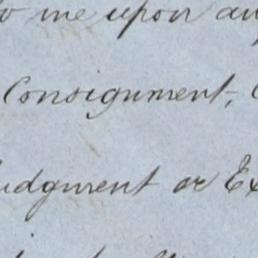 to me upon any
Consignment, C
udgment or Ex